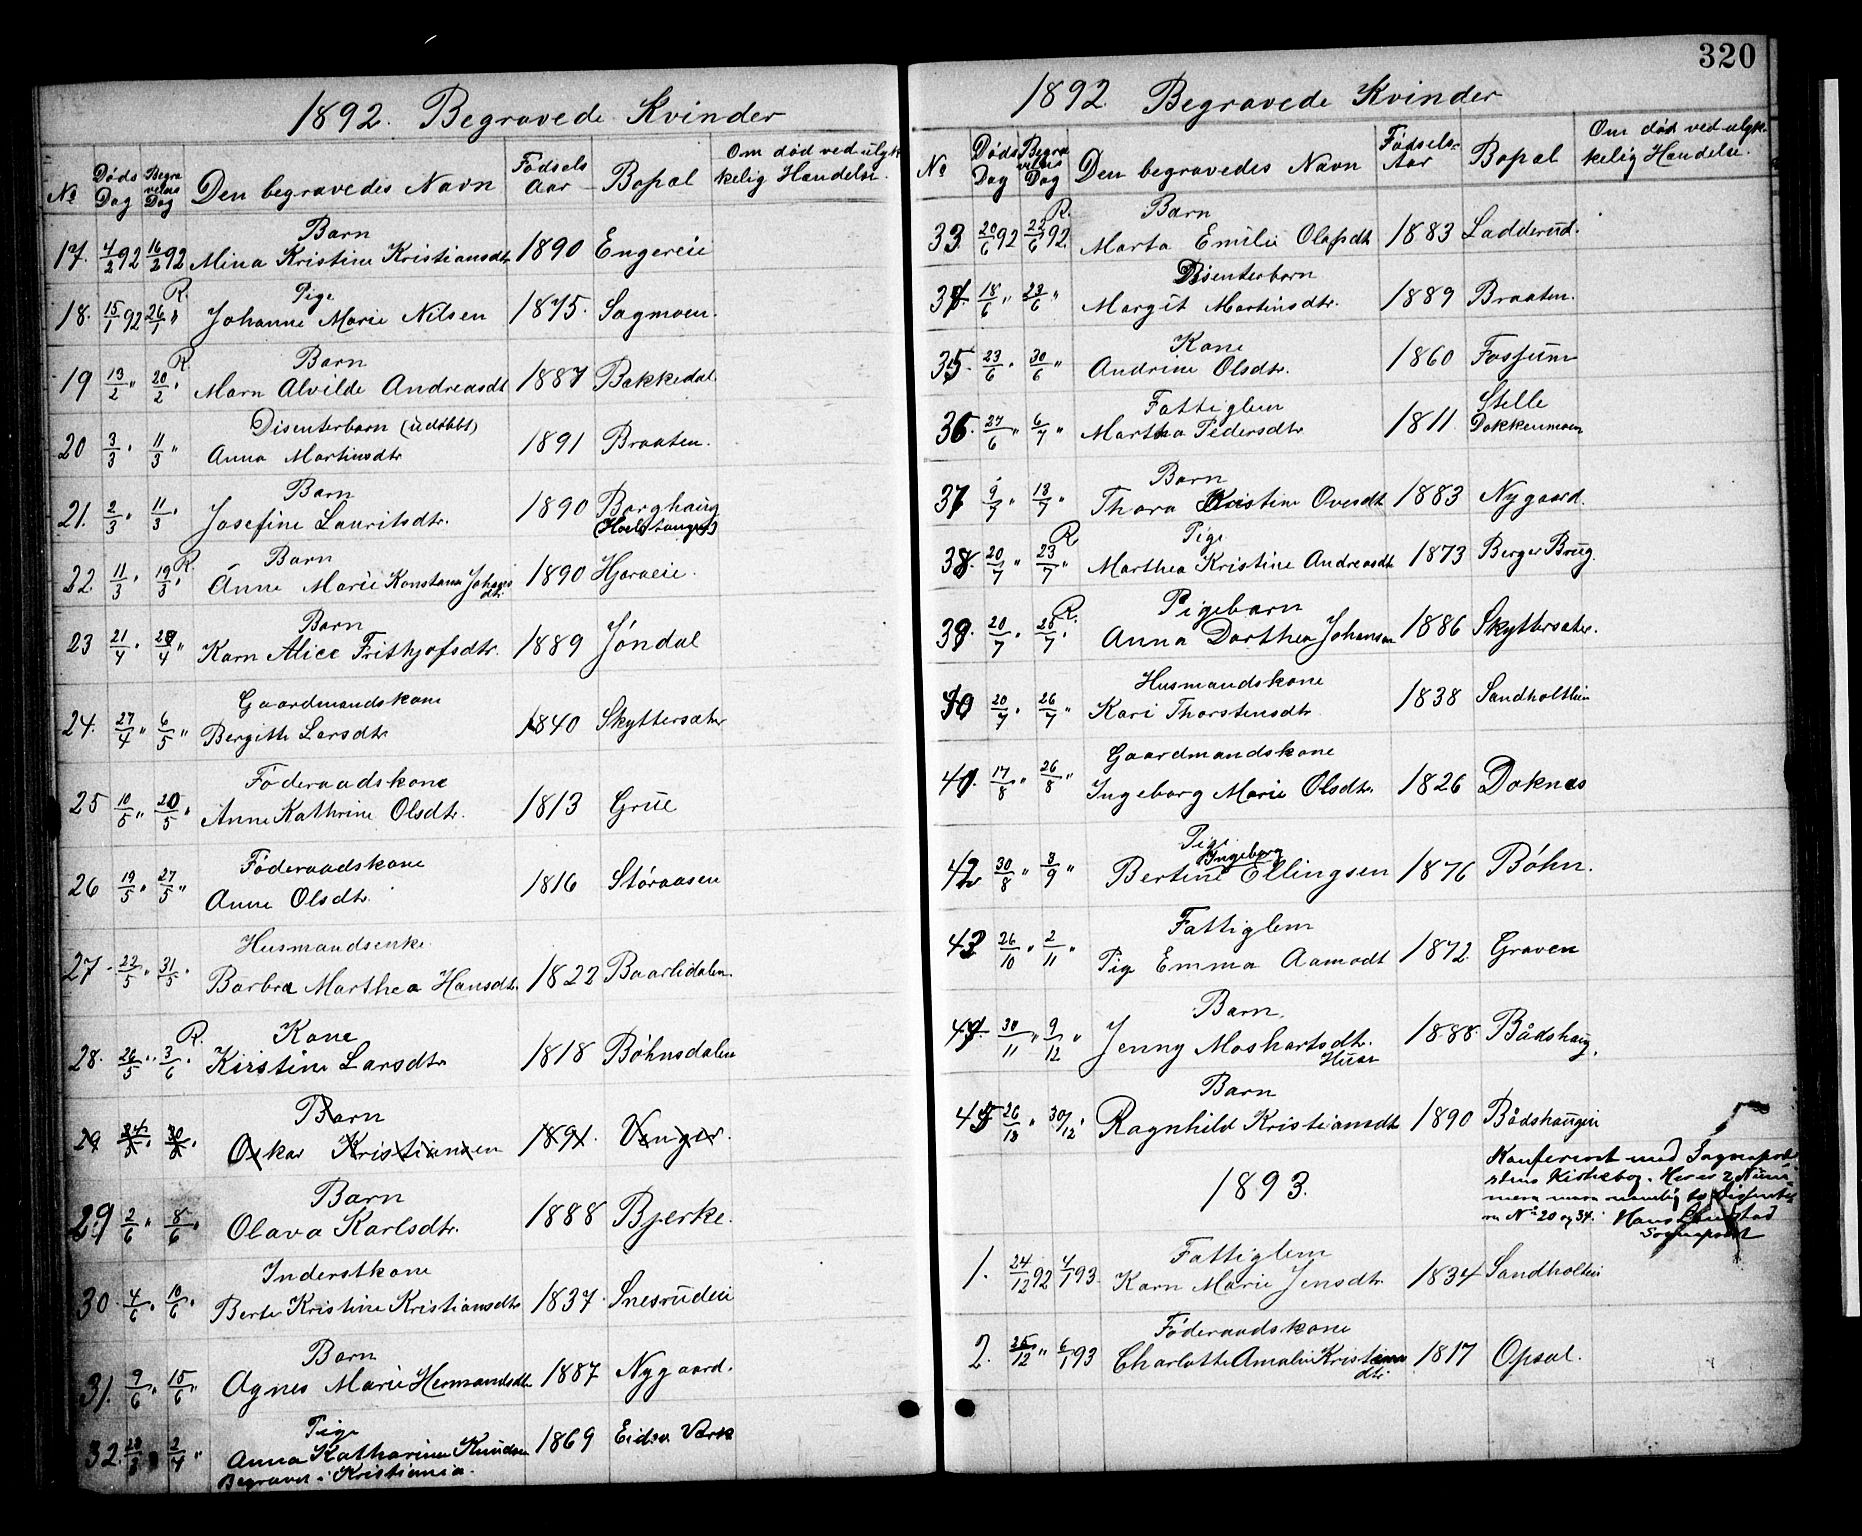 320
1892. Begravede Kvinder
№ Døds Dag Begra velses Dag Den begravedes Navn Fødsels Aar Bopæl Om død ved ulyk kelig Hændelse.
Barn
17. 4/2 92 16/2 92 Mina Kristine Kristiansdtr 1890 Engereie
R. Pige
18. 15/1 92 26/1 " Johanne Marie Nilsen 1875. Sagmoen.
R. Barn
19 13/2 " 20/2 " Marn Alvilde Andreasdt 1887 Bakkedal
Disenterbarn (udøbbt)
20 3/3 " 11/3 " Anna Martinsdtr 1891 Braaten.
Barn
21. 2/3 " 11/3 " Josefine Lauritsdtr. 1890 Borghaug
R. Barn
22. 11/3 " 19/3 " Anne Marie Konstanse Johans 1890 Hjeraeie.
dtr.
Barn
23 21/4 " 28/4 " Karn Alice Frithjofsdtr. 1889 Jøndal
Gaardmandskone
24. 27/4 " 6/5 " Bergithe Larsdtr 1840 Skyttersæter
Føderaadskone
25 10/5 " 20/5 " Anne Kathrine Olsdtr. 1813 Grue
Føderaadskone
26 19/5 " 27/5 " Anne Olsdtr. 1816 Støraasen
Husmandsenke
27 22/5 " 31/5 " Barbra Marthea Hansdtr. 1822 Baarlidalen.
R. Kone
28. 26/5 " 3/6 " Kirstine Larsdtr 1818 Bøhnsdalen
Barn
29 Oskar Kristiansen 1891. Venger.
Barn
29 2/6 " 8/6 " Olava Karlsdtr. 1888 Bjerke.
Inderstkone
30 4/6 " 10/6 " Berte Kristine Kristiansdtr 1837. Snesrudeie
Barn
31. 9/6 " 15/6 " Agnes Marie Hermansdtr 1887 Nygaard.
Pige
32. 2/4 " Anna Katharina Knudsen 1869 Eidsv. Værk
Begravet i Kristiania.
1892. Begravede Kvinder
№ Døds Dag Begra velses Dag Den begravedes Navn Fødsels- Aar Bopæl Om død ved ulyk- kelig Hændelse.
R. Barn
33 20/6 92 22/6 92. Marta Emilie Olafsdt 1883 Ladderud.
Disenterbarn
34. 18/6 " 23/6 " Margit Martinsdtr. 1889 Braaten.
Kone
35. 23/6 " 30/6 " Andrine Olsdtr. 1860 Fossum
Fattiglem Stelle
36. 27/6 " 6/7 " Martha Pedersdtr 1811 Dokkenmoen
Barn
37 9/7 " 13/7 " Thora Kristine Ovesdt 1883 Nygaard.
R. Pige
38. 20/7 " 23/7 " Marthea Kristine Andreasdt 1873 Berger Brug.
R. Pigebarn
39. 20/7 " 25/7 " Anna Dorthea Johansen 1886 Skyttersæter.
Husmandskone
40 20/7 " 26/7 " Kari Thorstensdtr 1838 Sandholteie
Gaardmandskone
41. 17/8 " 26/8 " Ingeborg Marie Olsdtr. 1826 Doknæs
Pige
Ingeborg
42 30/8 " 3/9 " Bertine Ellingsen 1876 Bøhn.
Fattiglem
43 26/10 " 2/11 " Pige Emma Aamodt 1872. Graven
Barn.
44. 30/11 " 9/12 " Jenny Moshartsdtr. 1888. Bådshaug.
Huser
Barn
45 26/12 " 30/12 " Ragnhild Kristiansdt 1890 Bådshaugen
Konfereret med Sognepræ-
stens Kirkebog. Her er 2 Num-
mere mere nemlig to Dissente-
re No 20 og 34. Hans
Sognepræst
1893.
Fattiglem
1. 24/12 92 4/1 93. Karn Marie Jensdtr 1834 Sandholteie
Føderaadskone
2. 25/12 " 6/1 93 Charlotte Amalie Kristians 1817 Opsal.
dtr.